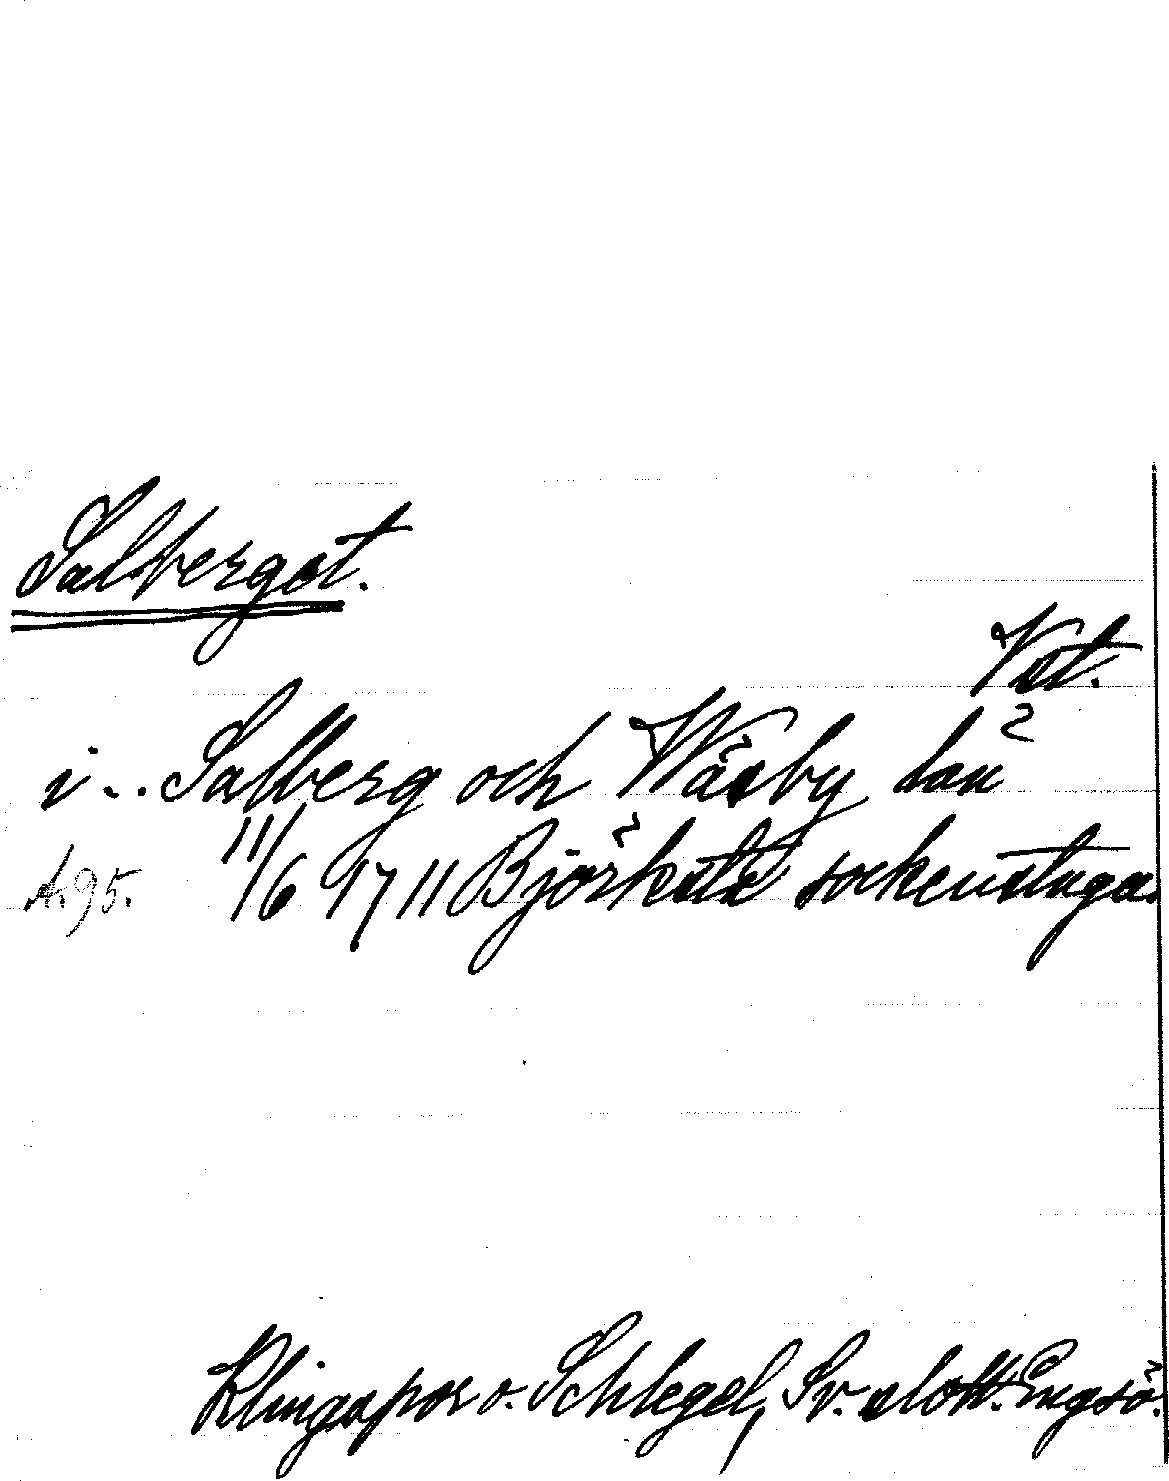 Salberget.
Vst.
i .. Salberg och Wäsby län
A. 95. 11/6 1711 Björksta sockenstuga.
Klingspor o. Schlegel, Sv. slott. Engsö.